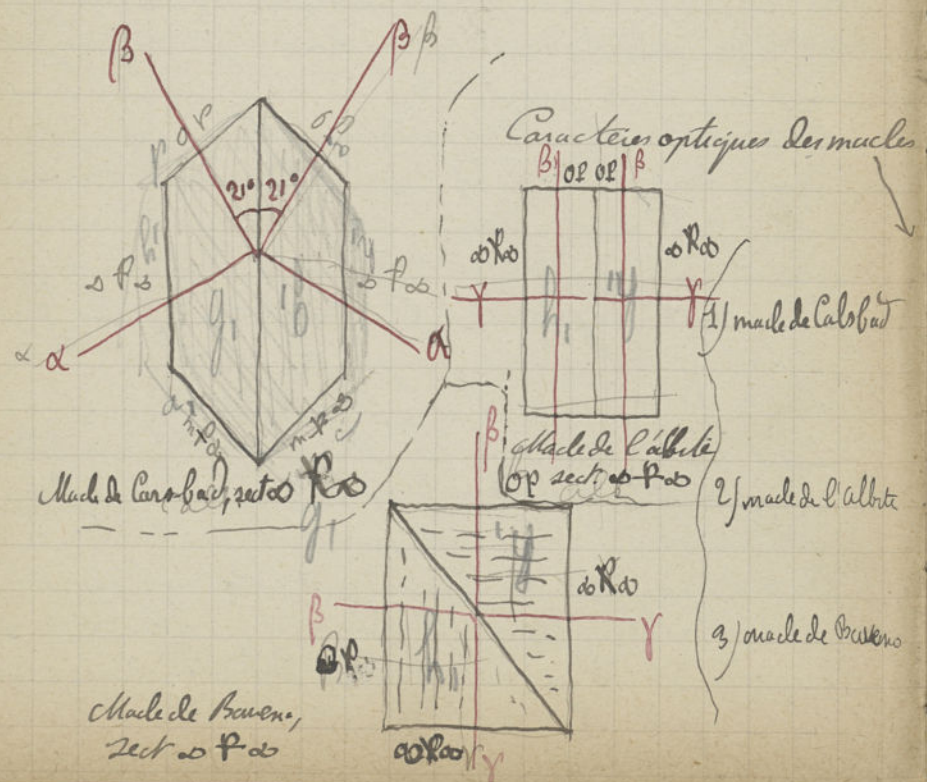 β β β
oP oP
p
21° 21°
h¹
∞P∞ ∞P∞
g₁
α α α
m P∞ m P∞
Macle de Carsbad, sect ∞ P∞
g₁
Caractères optiques des macles
β oP oP β
∞P∞ ∞P∞
h₁
γ γ
1) macle de Calsbad
Macle de l'albite
oP sect. ∞P∞
2) macle de l'albite
β
∞P∞
β γ
h₁
3) macle de Baveno
Macle de Baveno,
sect ∞P∞
∞P∞
γ